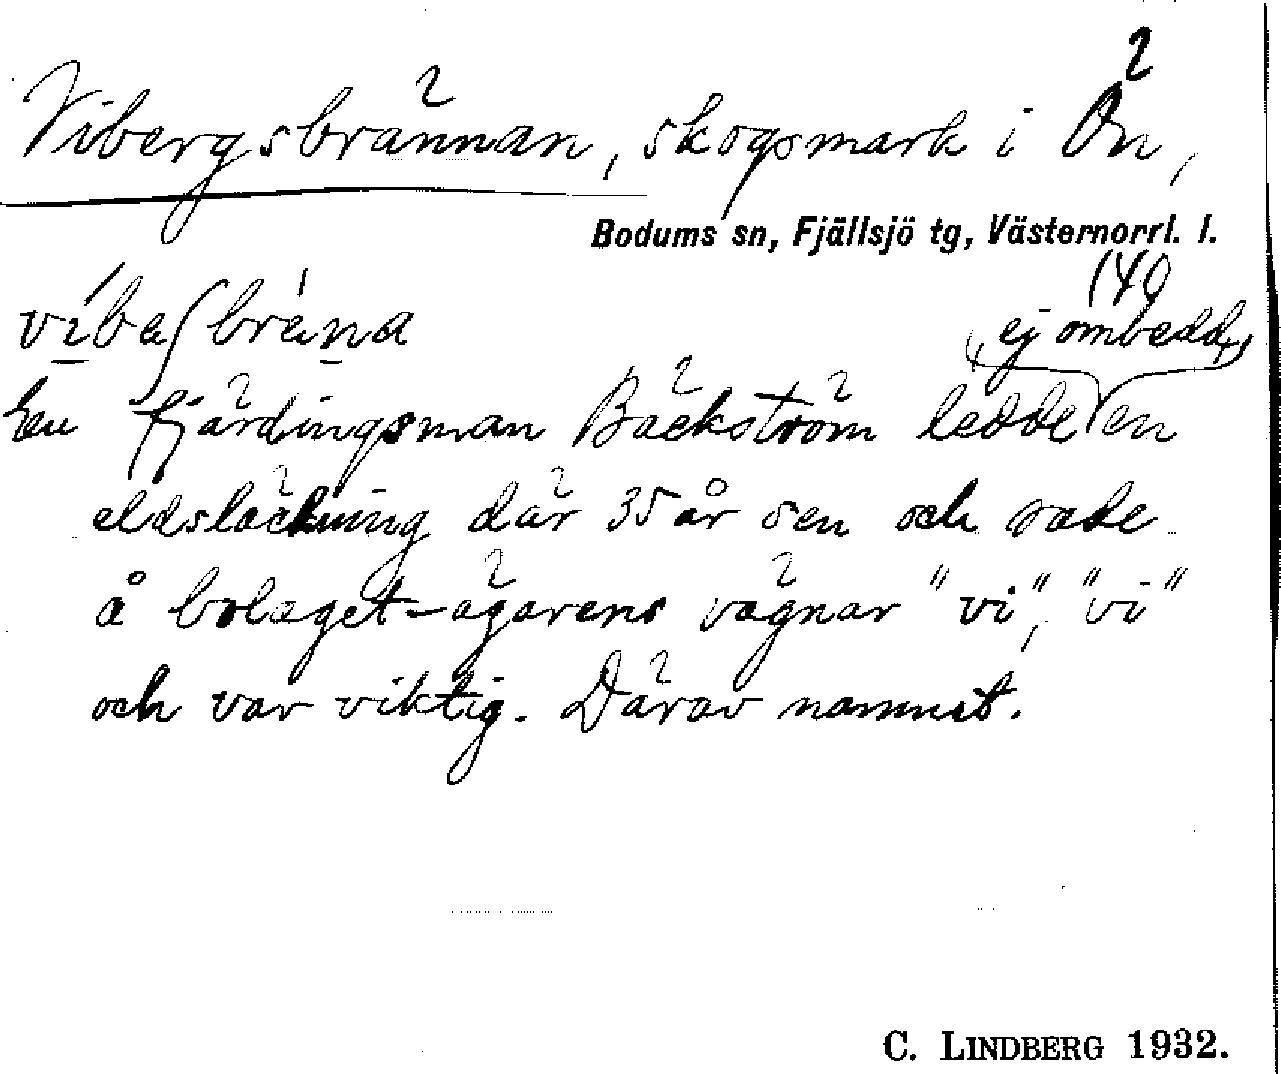 Vibergsbrännan, skogsmark i Ön,
Bodums sn, Fjällsjö tg, Västernorrl. l.
(40
ej ombedd,
En fjärdingsman Bäckström ledde en
eldsläckning där 35 år sen och sade
å bolaget-ägarens vägnar "vi", "vi"
och var viktig. Därav namnet.
C. LINDBERG 1932.